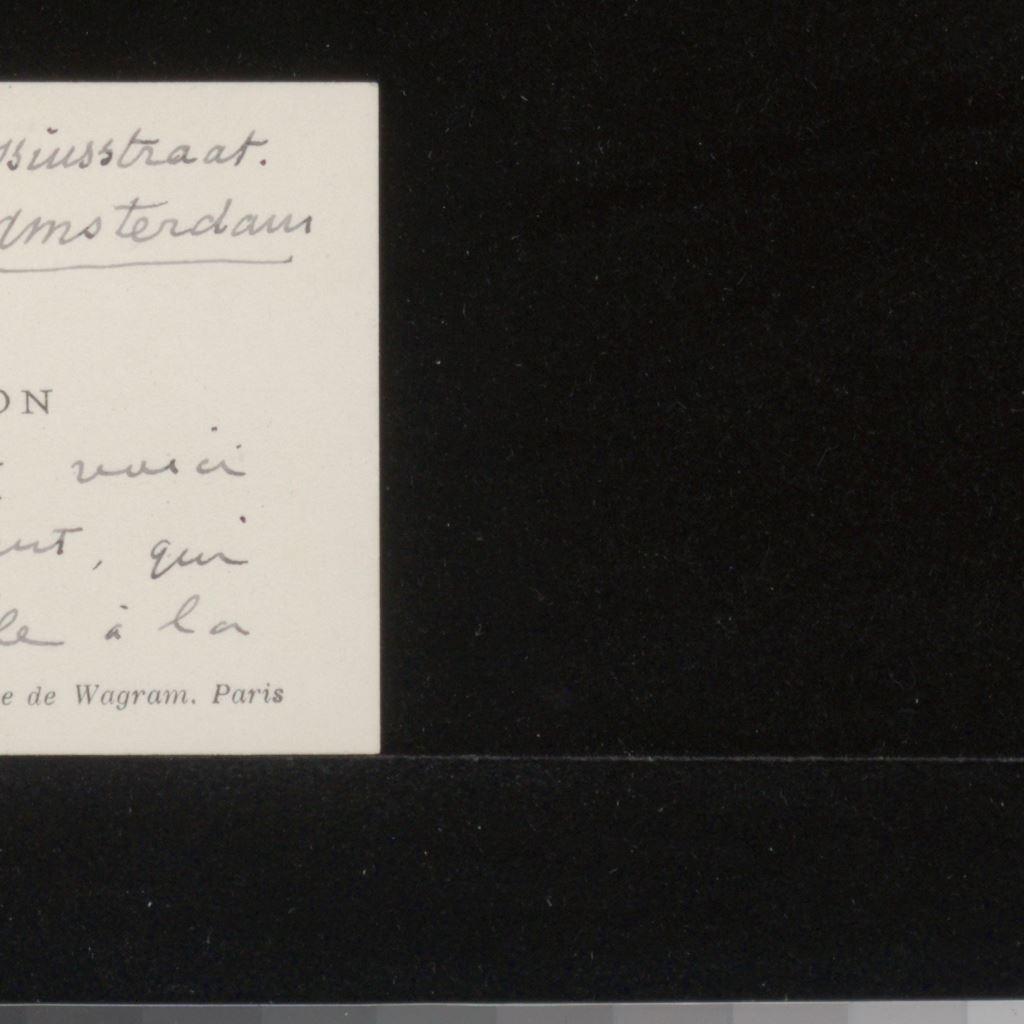 ssiusstraat.
Amsterdam
ON
voici
ut, qui
le à la
e de Wagram. Paris